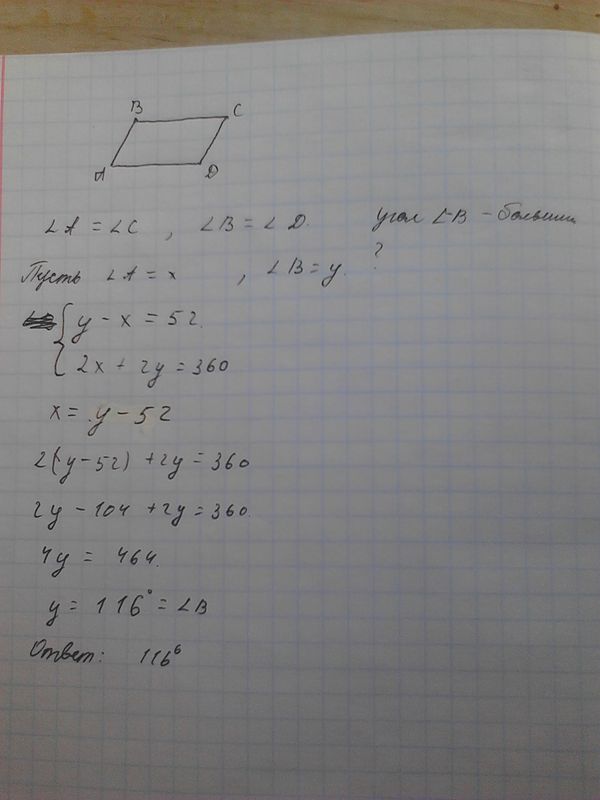 B C
A D
∠A = ∠C , ∠B = ∠D. угол ∠B – больший
?
Пусть ∠A = x , ∠B = y.
y - x = 52.
2x + 2y = 360
x = y - 52
2(y-52) + 2y = 360
2y - 104 + 2y = 360.
4y = 464.
y = 116° = ∠B
Ответ: 116°